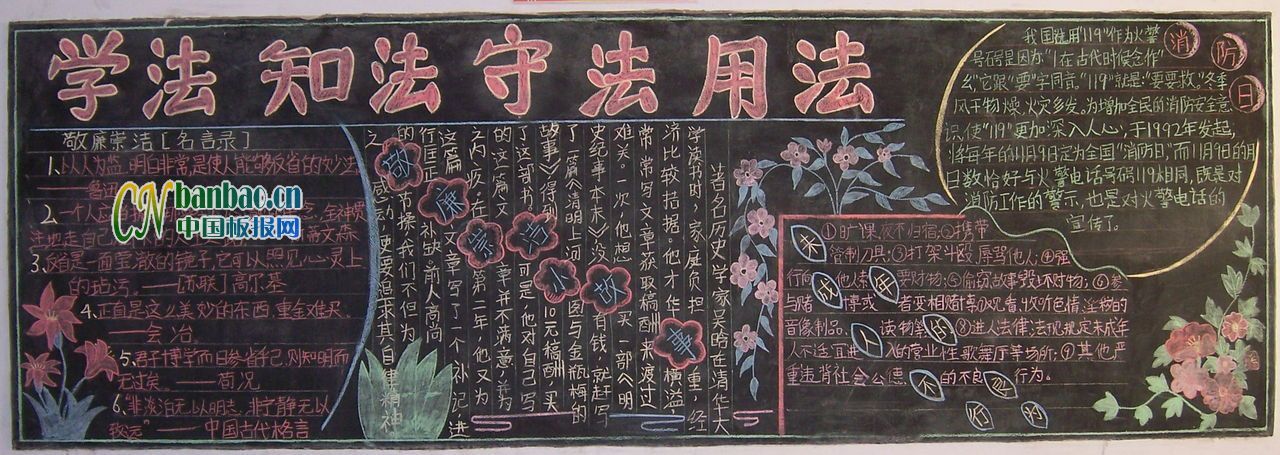 学法 知法 守法 用法
敬廉崇洁[名言录]
1.以人为监,明白非常,是使人能够反省的妙法
——鲁迅
2.一个人
3.反省是一面莹澈的镜子,它可以照见心灵上
的玷污——苏联高尔基
4.正直是这么美妙的东西,重金难买。
——会冶。
5.君子博学而日参省乎己,则知明而
无过矣。——荀况
6.“非淡泊无以明志,非宁静无以
致远”——中国古代格言
CN banbao.cn
中国板报网
敬廉崇洁小故事
著名历史学家吴晗在清华大
学读书时,家庭负担重,经
济比较拮据。他才华横溢
常常写文章获取稿酬来渡过
难关。一次,他想买一部《明
史纪事本末》没有钱,就赶写
了一篇《清明上河图与金瓶梅的
故事》得到10元稿酬,买
了这部书。可是他对自己写
的这篇文章并不满意,并为
之内疚。在第二年,他又为
这篇文章写了一个补记,进
行匡正补缺。前人高尚
的情操,我们不但为
之感动,更要追求其自律精神。
我国选用“119”作为火警
号码是因为“1”在古代时候念作“
幺”,它跟“要”字同音。“119”就是:“要要救”。冬季
风干物燥,火灾多发。为增加全民的消防安全意
识,使“119”更加深入人心,于1992年发起,
将每年的11月9日定为全国“消防日”。而11月9日的月
日数恰好与火警电话号码119相同,既是对
消防工作的警示,也是对火警电话的
宣传了。
消防日
未成年人的不良行为
①旷课夜不归宿;②携带
管制刀具;③打架斗殴辱骂他人;④强
行向他人索要财物;⑤偷窃故事毁坏财物;⑥参
与赌博或者变相赌博;⑦观看、收听色情、淫秽的
音像制品读物等;⑧进入法律法规规定未成年
人不适宜进入的营业性歌舞厅等场所;⑨其他严
重违背社会公德的不良行为。